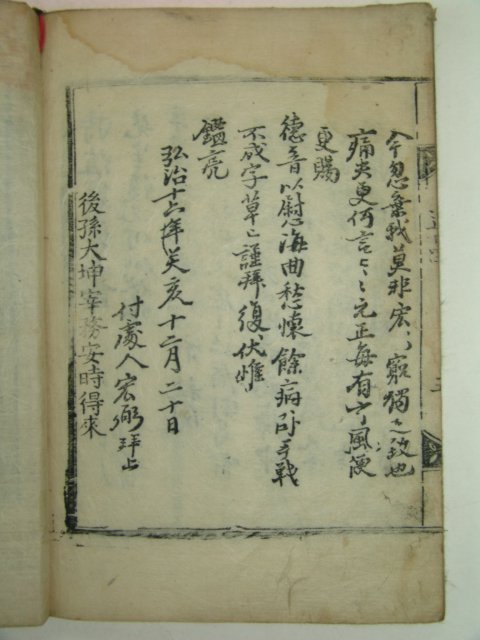 今忽棄我莫非宏ミ窮獨之致也
痛哭更何言ミミ元正每有丁風便
更賜
德音以慰海曲愁悚餘病臥手戰
不成字草ミ謹拜復伏惟
鑑亮
弘治十六年癸亥十二月二十日
付處人宏弼拜上
後孫大坤宰務安時得來